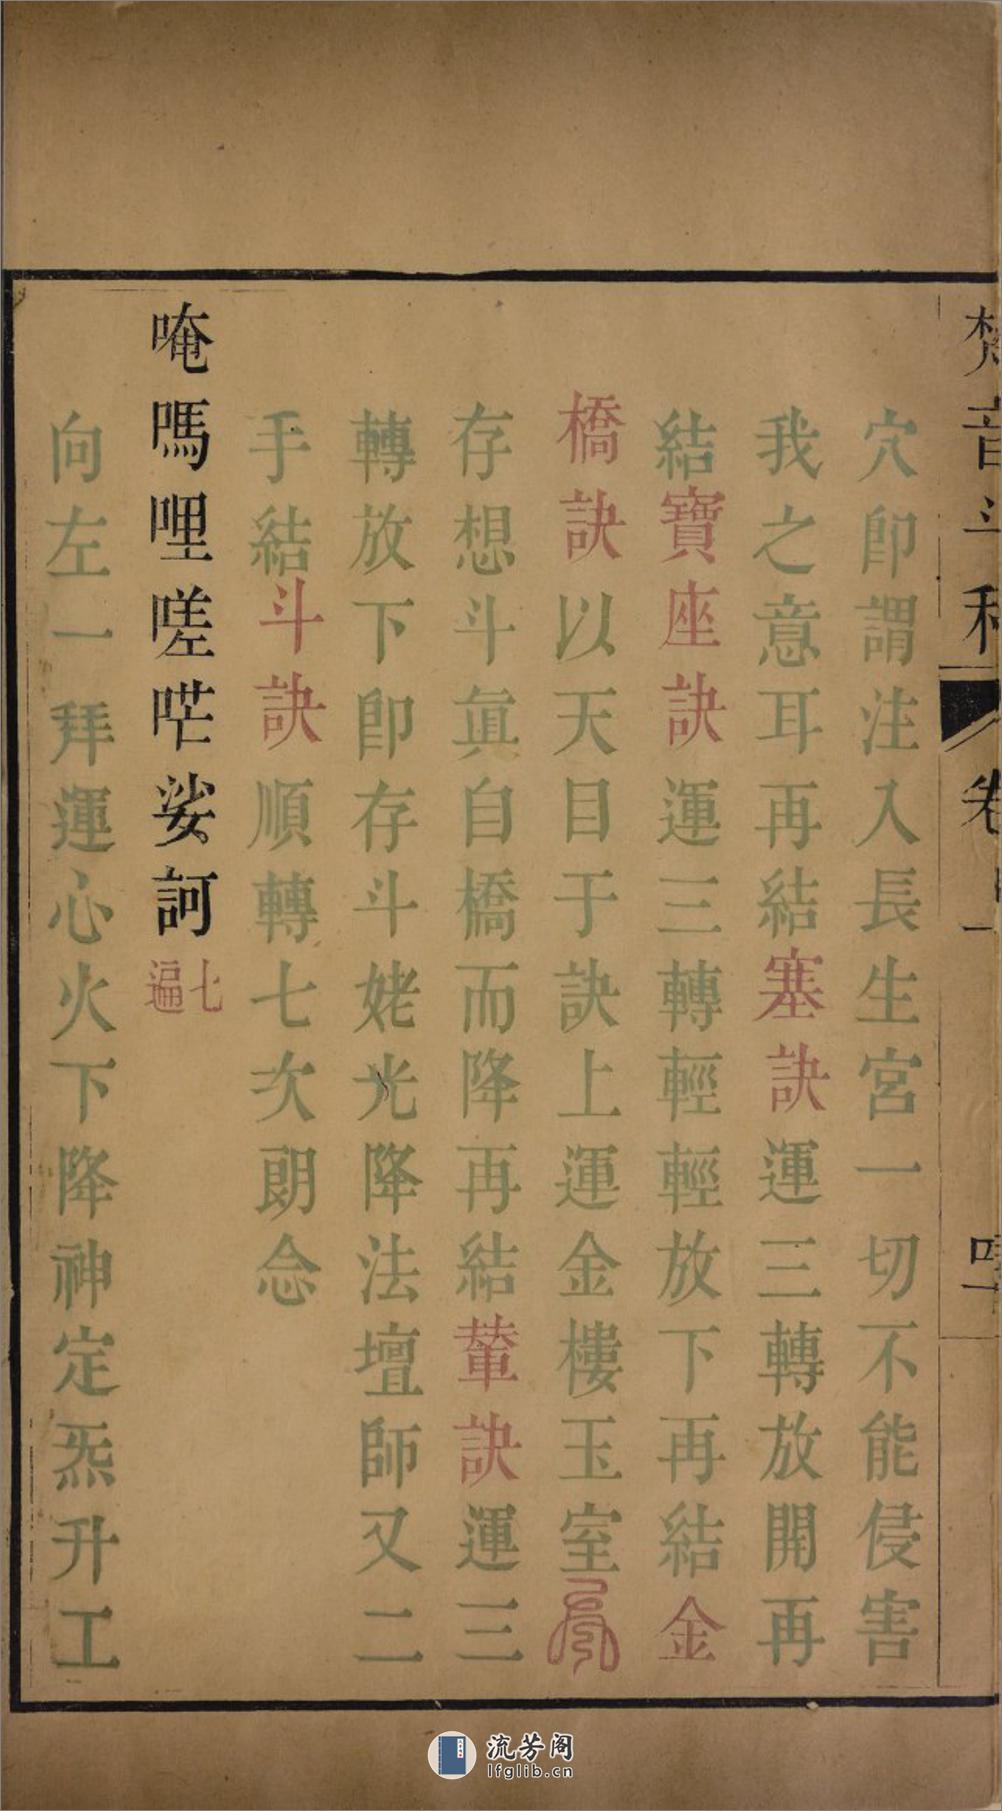 梵音斗科
卷
穴卽謂注入長生宮一切不能侵害
我之意耳再結塞訣運三轉放開再
結寶座訣運三轉輕輕放下再結金
橋訣以天目于訣上運金樓玉室
存想斗眞自橋而降再結輦訣運三
轉放下卽存斗姥光降法壇師又二
手結斗訣順轉七次朗念
唵嗎哩嗟𠵨娑訶七遍
向左一拜運心火下降神定炁升工
流芳阁
lfglib.cn